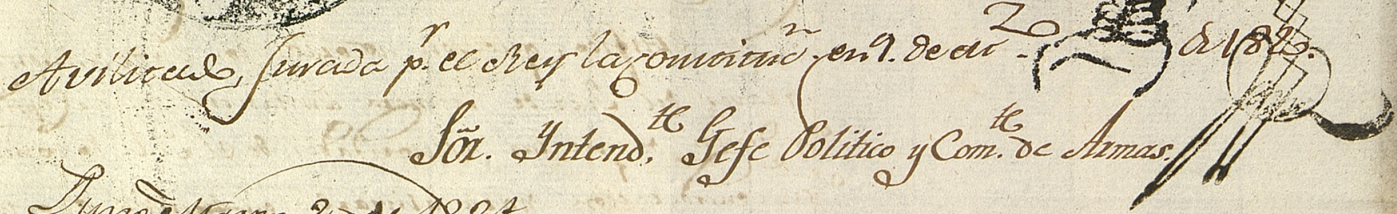 Avilitado, Jurada pr. el Rey la Constitucn. en 9. de de 182
Sõr. Yntend.te Gefe Politico y Com.te de Armas.
de 1821